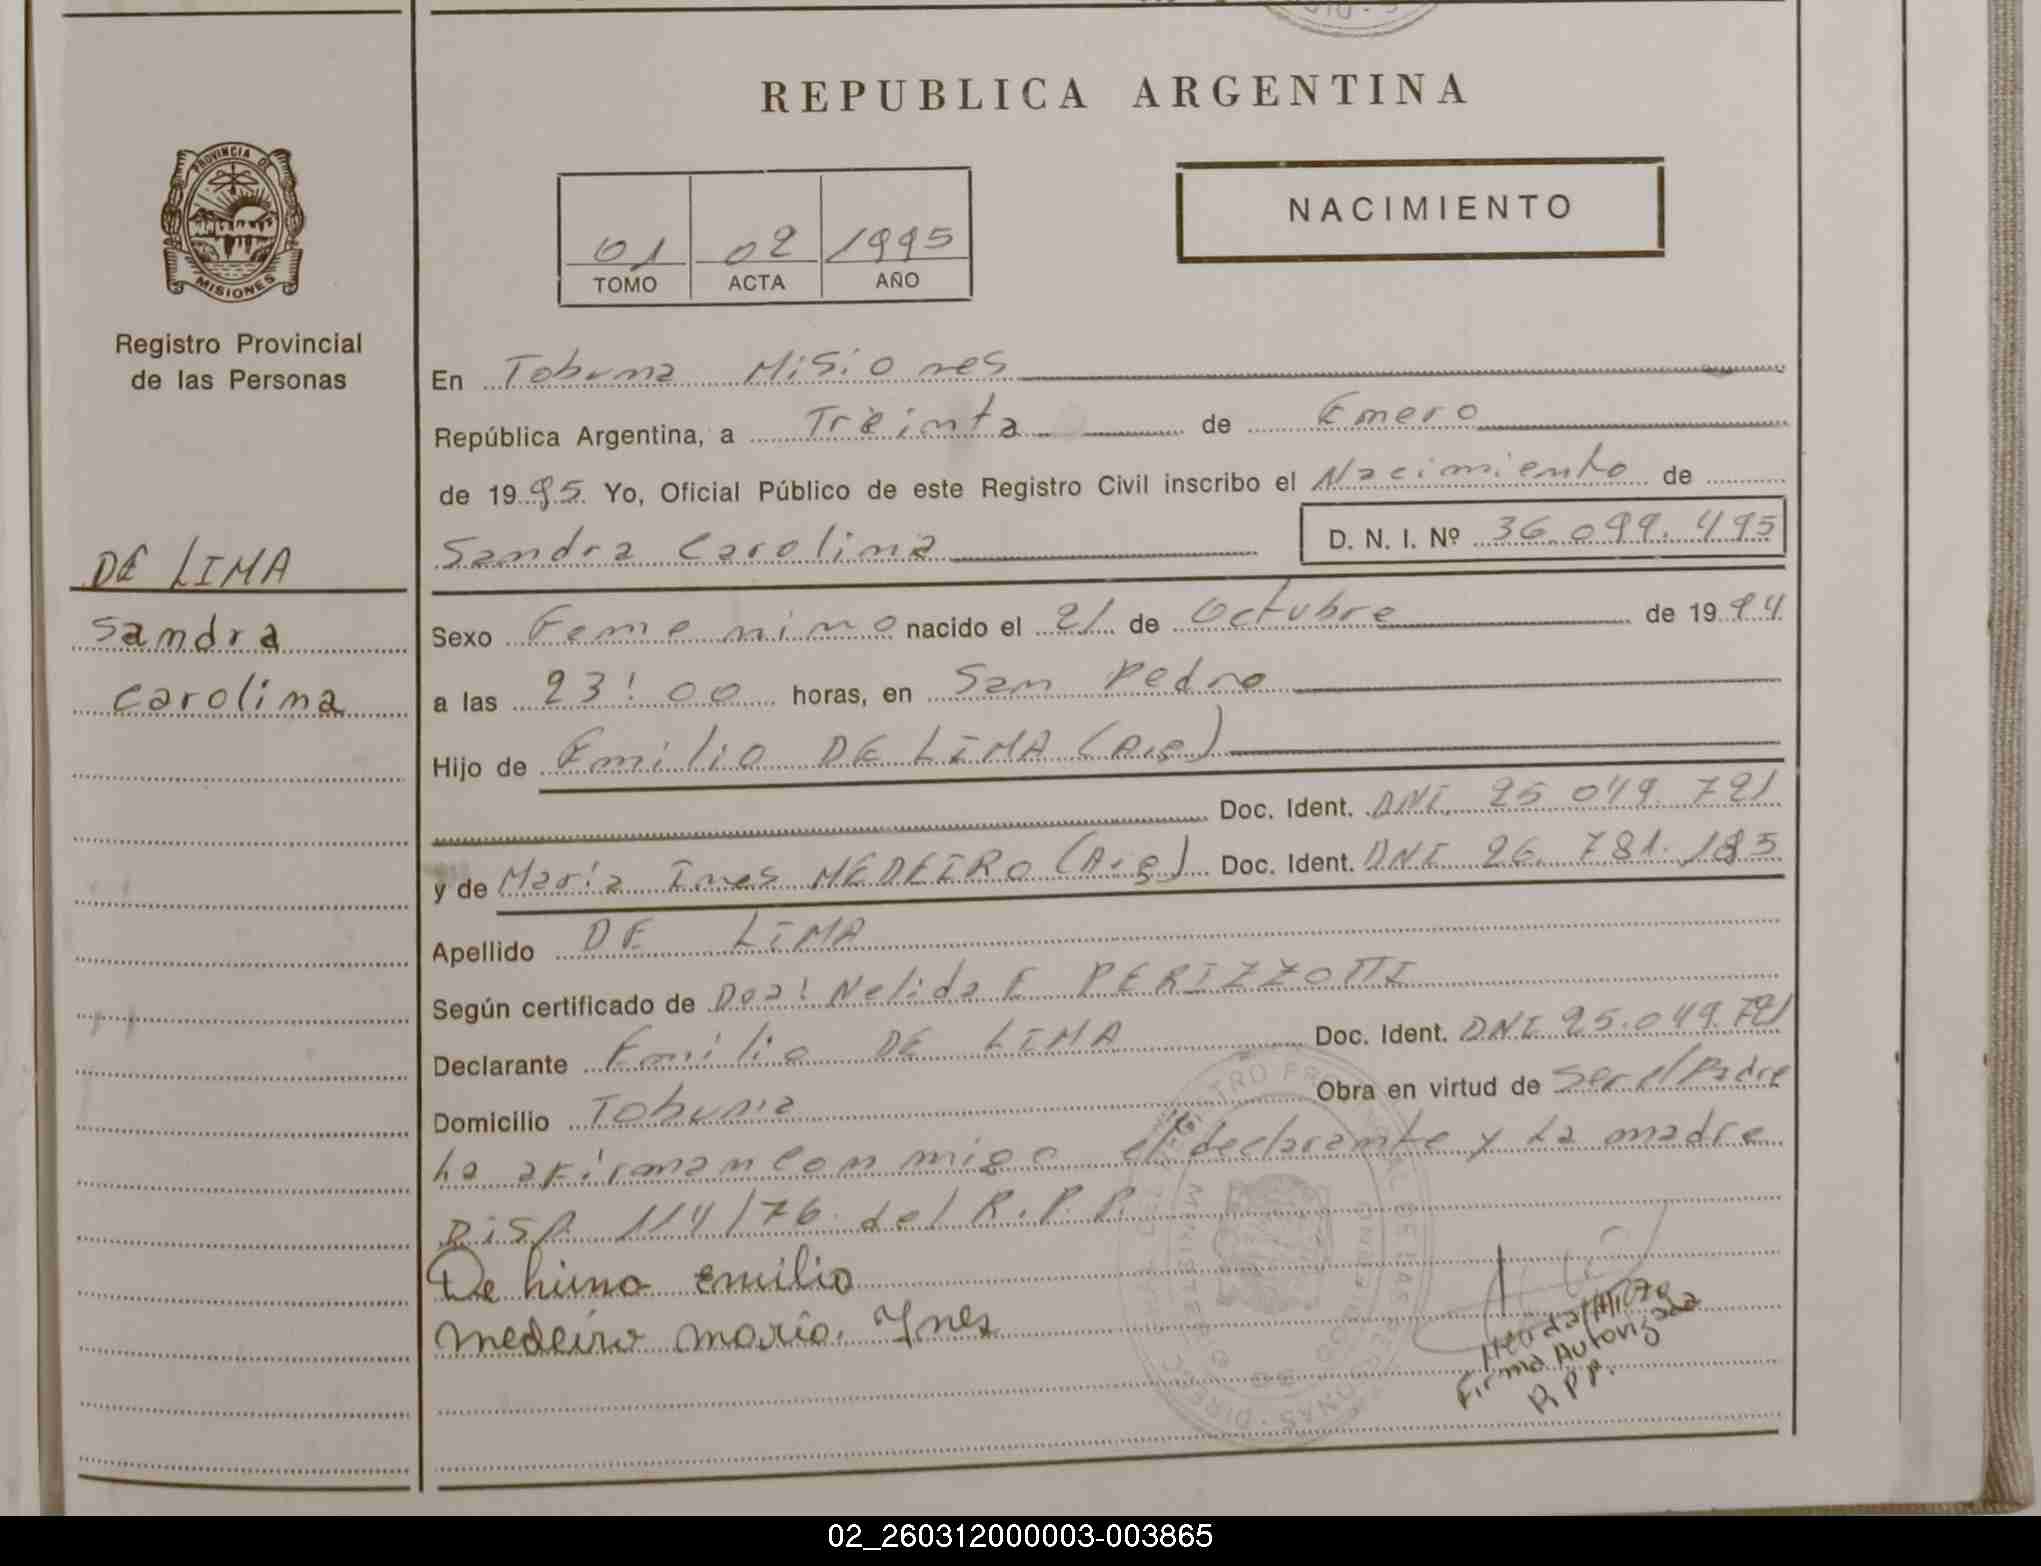 REPUBLICA ARGENTINA
PROVINCIA DE
MISIONES
Registro Provincial
de las Personas
01 02 1995
TOMO ACTA AÑO
NACIMIENTO
DE LIMA
Sandra
Carolina
En Tobuna Misiones
República Argentina, a Treinta de Enero
de 1995 Yo, Oficial Público de este Registro Civil inscribo el Nacimiento de
Sandra Carolina D. N. I. Nº 36.099.495
Sexo Femenino nacido el 21 de Octubre de 1994
a las 23:00 horas, en San Pedro
Hijo de Emilio DE LIMA (Arg)
Doc. Ident. DNI 25 049 721
y de María Ines MEDEIRO (Arg) Doc. Ident. DNI 26.781.185
Apellido DE LIMA
Según certificado de Dra: Nelida E PERIZZOTTI
Declarante Emilio DE LIMA Doc. Ident. DNI 25.049.721
Domicilio Tobuna Obra en virtud de Ser el Padre
La afirman con migo el declarante y La madre
DISP. 114/76 del R.P.P.
De hima Emilio
medeiro maria. Ynes
Firma Autorizada
R PP.
02_260312000003-003865